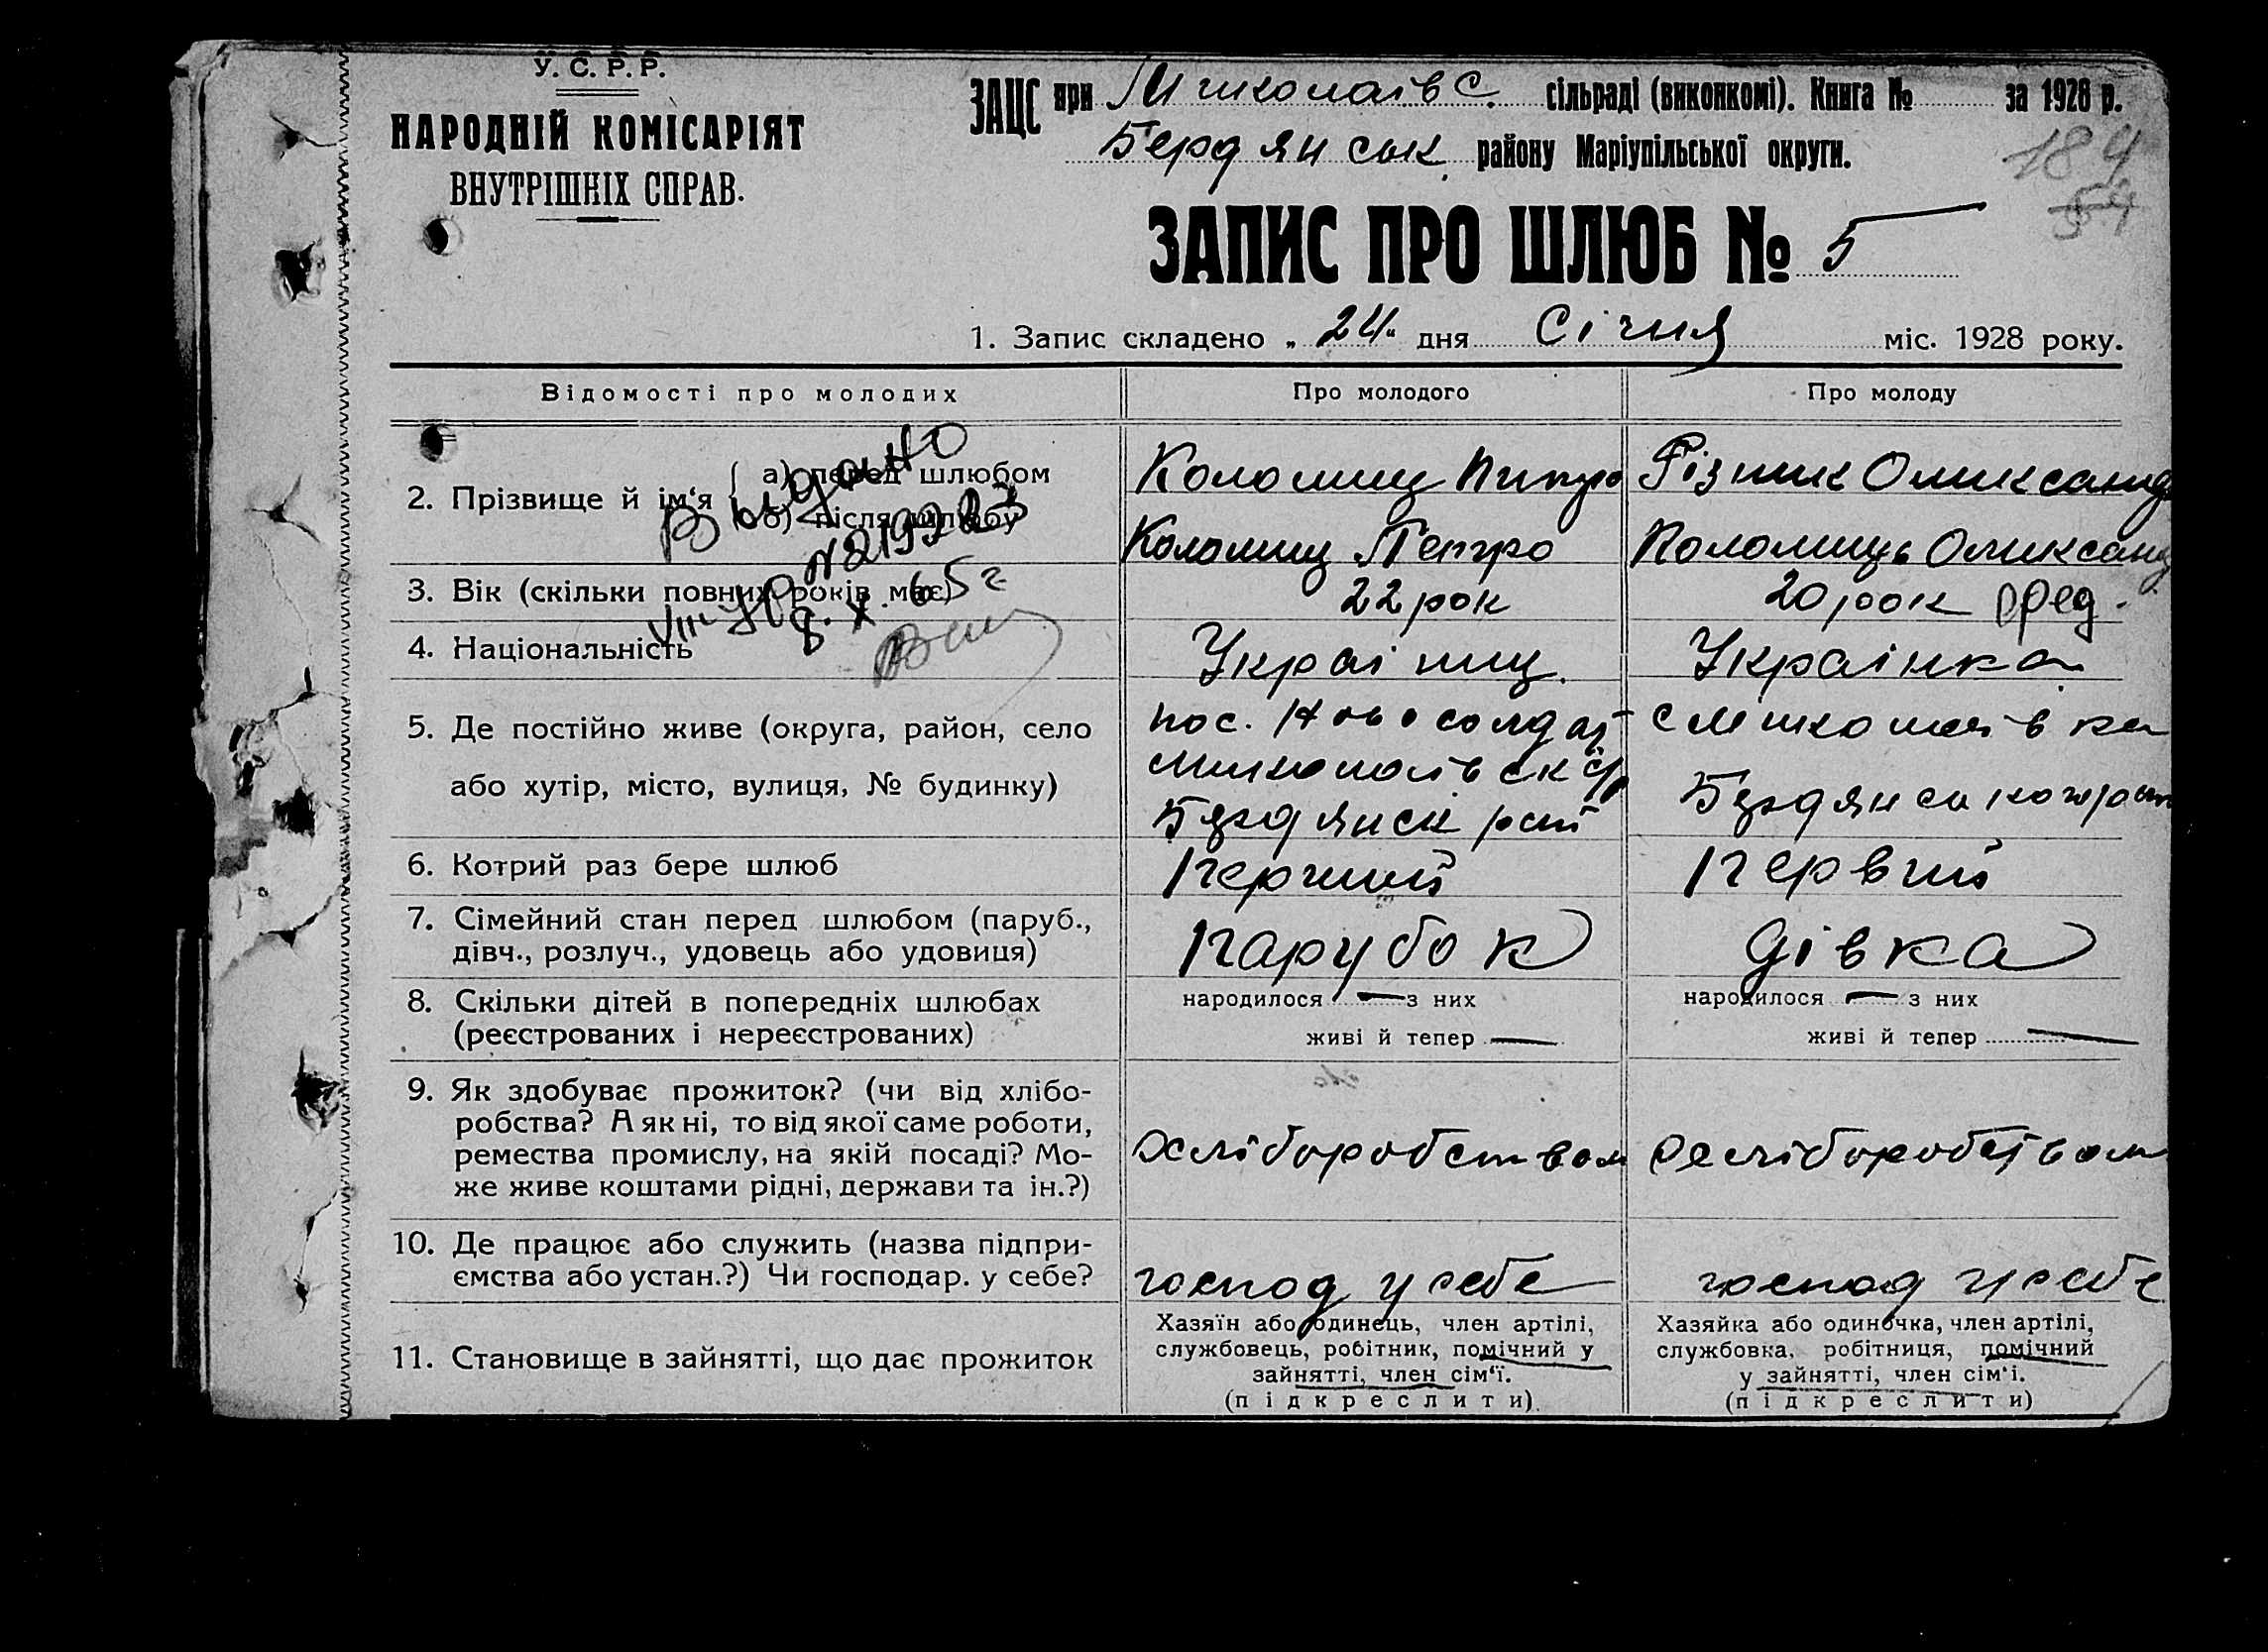 У. С. Р. Р.
НАРОДНІЙ КОМІСАРІЯТ
ВНУТРІШНІХ СПРАВ.
ЗАЦС при Миколаівс. сільраді (виконкомі). Книга № за 1928 р.
Бердянськ. району Маріупільської округи.
184
54
ЗАПИС ПРО ШЛЮБ № 5
1. Запис складено „ 24 “ дня Січня міс. 1928 року.
Відомості про молодих
Про молодого
Про молоду
2. Прізвище й ім‘я
а) перед шлюбом
Коломиц Питро
Різник Олександ
б) після шлюбу
Коломиц Петро
Коломиць Олександ
Выдано
3. Вік (скільки повних років має)
22 рок
20 рок
65 г
4. Національність
Украіниц.
Украінка
5. Де постійно живе (округа, район, село
або хутір, місто, вулиця, № будинку)
пос. Новосолдат
миколаівск с/р
Бердянск рай
с Миколаівка
6. Котрий раз бере шлюб
Перший
Первий
7. Сімейний стан перед шлюбом (паруб.,
дівч., розлуч., удовець або удовиця)
Парубок
дівка
8. Скільки дітей в попередніх шлюбах
(реєстрованих і нереєстрованих)
народилося — з них
живі й тепер —
народилося — з них
живі й тепер —
9. Як здобуває прожиток? (чи від хлібо-
робства? А як ні, то від якої саме роботи,
ремества промислу, на якій посаді? Мо-
же живе коштами рідні, держави та ін.?)
хліборобством
хліборобством
10. Де працює або служить (назва підпри-
ємства або устан.?) Чи господар. у себе?
господ у себе
господ у себе
11. Становище в зайнятті, що дає прожиток
Хазяїн або одинець, член артілі,
службовець, робітник, помічний у
зайнятті, член сім‘ї.
(підкреслити).
Хазяйка або одиночка, член артілі,
службовка, робітниця, помічний
у зайнятті, член сім‘і.
(підкреслити)